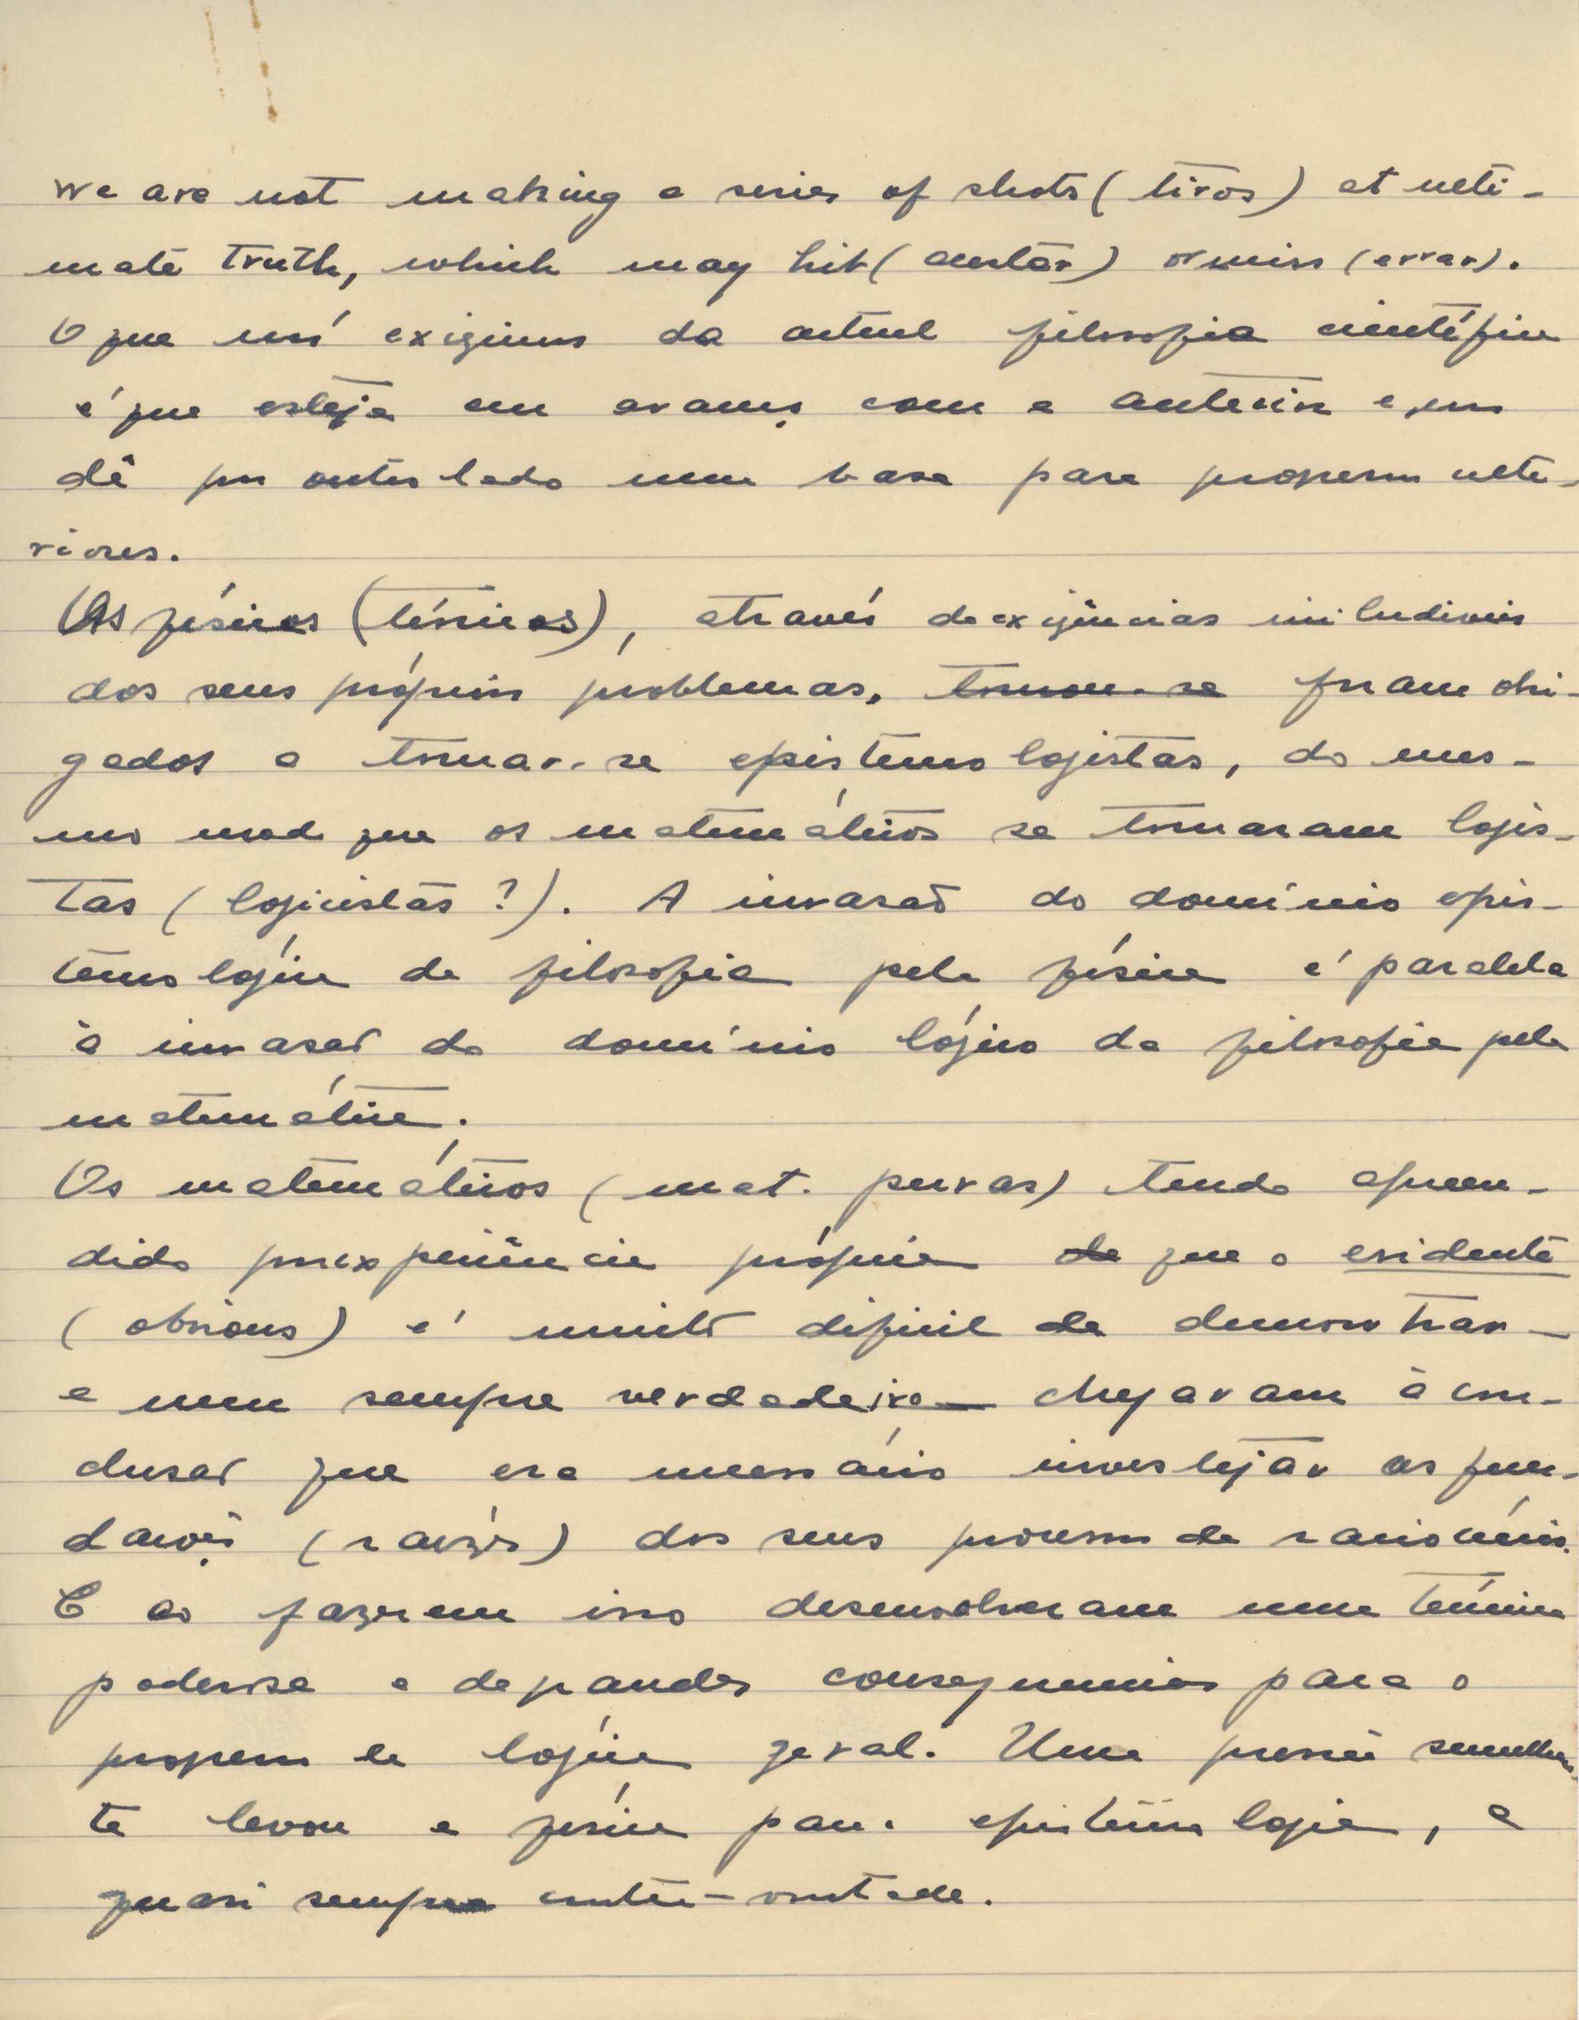 We are not making a series of shots (tiros) at ulti-
mate truth, which may hit (acertar) or miss (errar).
O que nós exigimos da actual filosofia científica
é que esteja em avanço com a anterior e, nos
dê por outro lado uma base para progressos ulte-
riores.
Os físicos (teóricos), através de exigências iniludiveis
dos seus próprios problemas, tornou-se foram obri-
gados a tornar-se epistemologistas, do mes-
mo modo que os matemáticos se tornaram logis-
tas (logicistas?). A invasão do domínio epis-
temológico da filosofia pela física é paralela
à invasão do domínio lógico da filosofia pela
matemática.
Os matemáticos (mat. puras) tendo apreen-
dido por experiência própria de que o evidente
(obvious) é muito dificil de demonstrar -
e nem sempre verdadeiro - chegaram à con-
clusão que era necessário investigar as fun-
dações (raízes) dos seus processos de raciocínio.
E ao fazerem isso desenvolveram uma técnica
poderosa e de grandes consequencias para o
progresso da lógica geral. Uma pressão semelhan-
te levou a física para a epistemologia, e
quasi sempre contra-vontade.